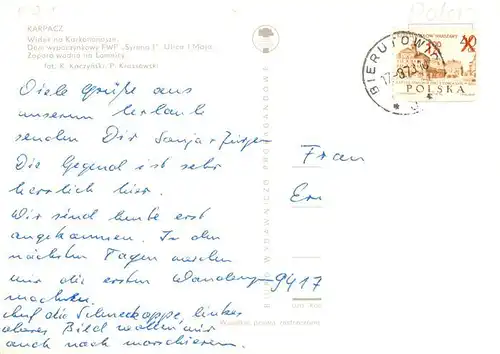 KARPACZ
Widok na Karkonosze.
Dom wypoczynkowy FWP "Syrena I". Ulica 1 Maja
Zapora wodna na Łomnicy
fot. K. Kaczyński, P. Krassowski
Viele Grüße aus
unserem Urlaub
senden Dir Sonja + Jürgen
Die Gegend ist sehr
herrlich hier.
Wir sind heute erst
angekommen. In den
nächsten Tagen werden
wir die ersten Wanderg
machen.
Auf die Schneekoppe, linkes
oberes Bild wollen wir
auch noch marschieren.
BIURO WYDAWNICZO PROPAGANDOWE
Frau
9417
BIERUTOWICE
POLSKA